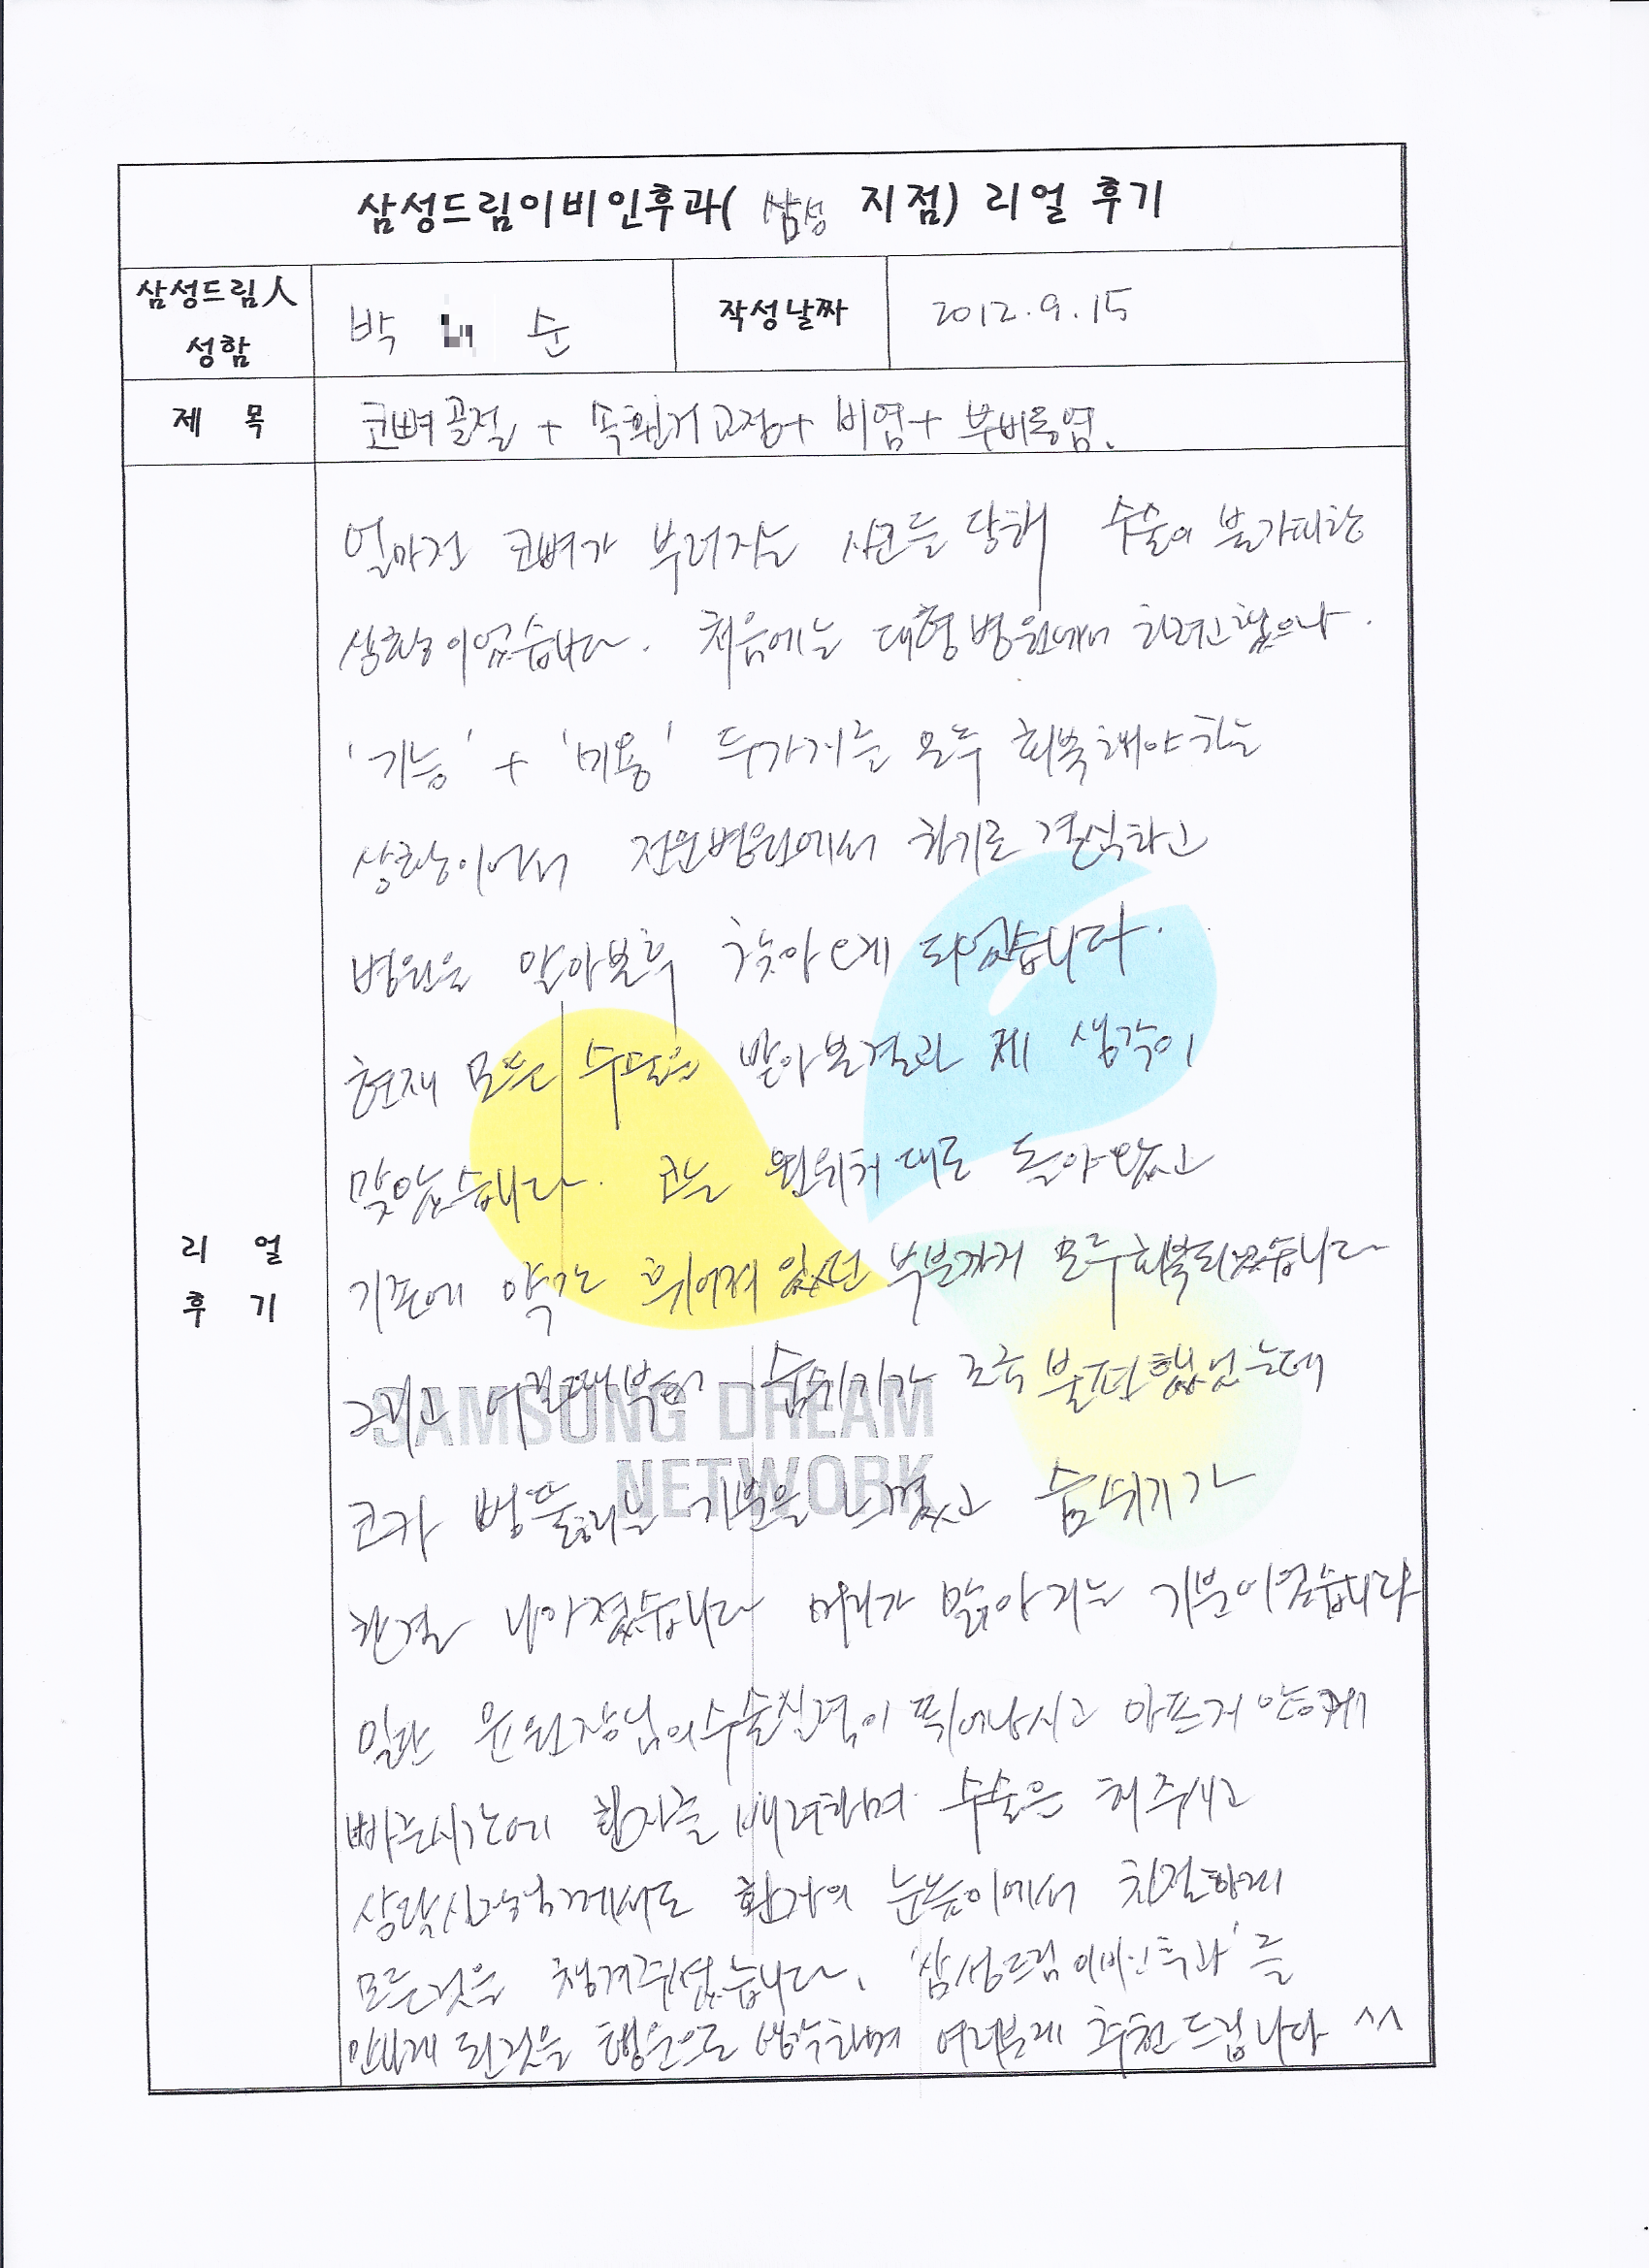 삼성드림이비인후과( 삼성 지점) 리얼 후기
삼성드림人
성함
박 순
작성날짜
2012.9.15
제 목
코뼈골절 + 속휜거교정+ 비염+ 부비동염.
얼마전 코뼈가 부러지는 사고를 당해 수술이 불가피한
상황이었습니다. 처음에는 대형병원에서 하려고했으나.
'기능' + '미용' 두가지를 모두 회복해야하는
상황이어서 전문병원에서 하기로 결심하고
병원을 알아본후 찾아오게 되었습니다.
현재 모든 수술을 받아본결과 제 생각이
맞았습니다. 코는 원위치대로 돌아왔고
기존에 약간 휘어져 있던 부분까지 모두회복되었습니다
그리고 어릴때부터 숨쉬기가 조금 불편했었는데
코가 뻥뚫리는 기분을 느꼈고 숨쉬기가
한결 나아졌습니다 머리가 맑아지는 기분이었습니다
일단 윤원장님의수술실력이 뛰어나시고 아프지 않게
빠른시간에 환자를 배려하며 수술을 해주시고
상담실장님께서도 환자의 눈높이에서 친절하게
모든것을 챙겨주셨습니다. '삼성드림이비인후과'를
만나게 된것을 행운으로 생각하며 여러분께 추천드립니다 ^^
리 얼
후 기
SAMSUNG DREAM
NETWORK